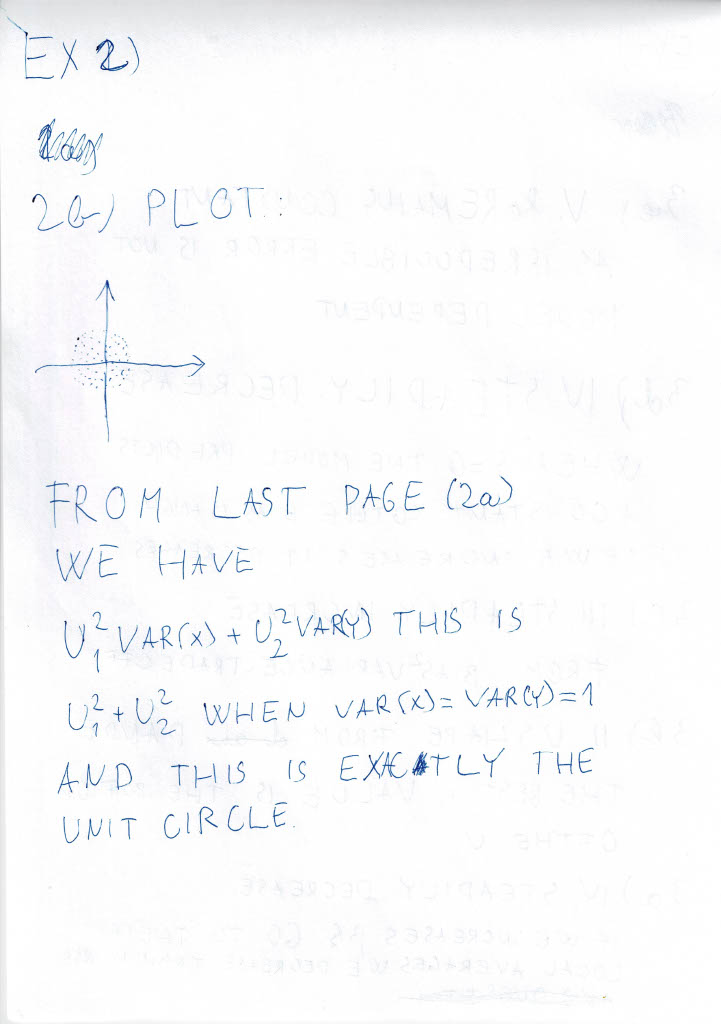 EX 2)
2b) PLOT:
FROM LAST PAGE (2a)
WE HAVE
U₁² VAR(X) + U₂² VAR(Y) THIS IS
U₁² + U₂² WHEN VAR(X) = VAR(Y) = 1
AND THIS IS EXACTLY THE
UNIT CIRCLE.